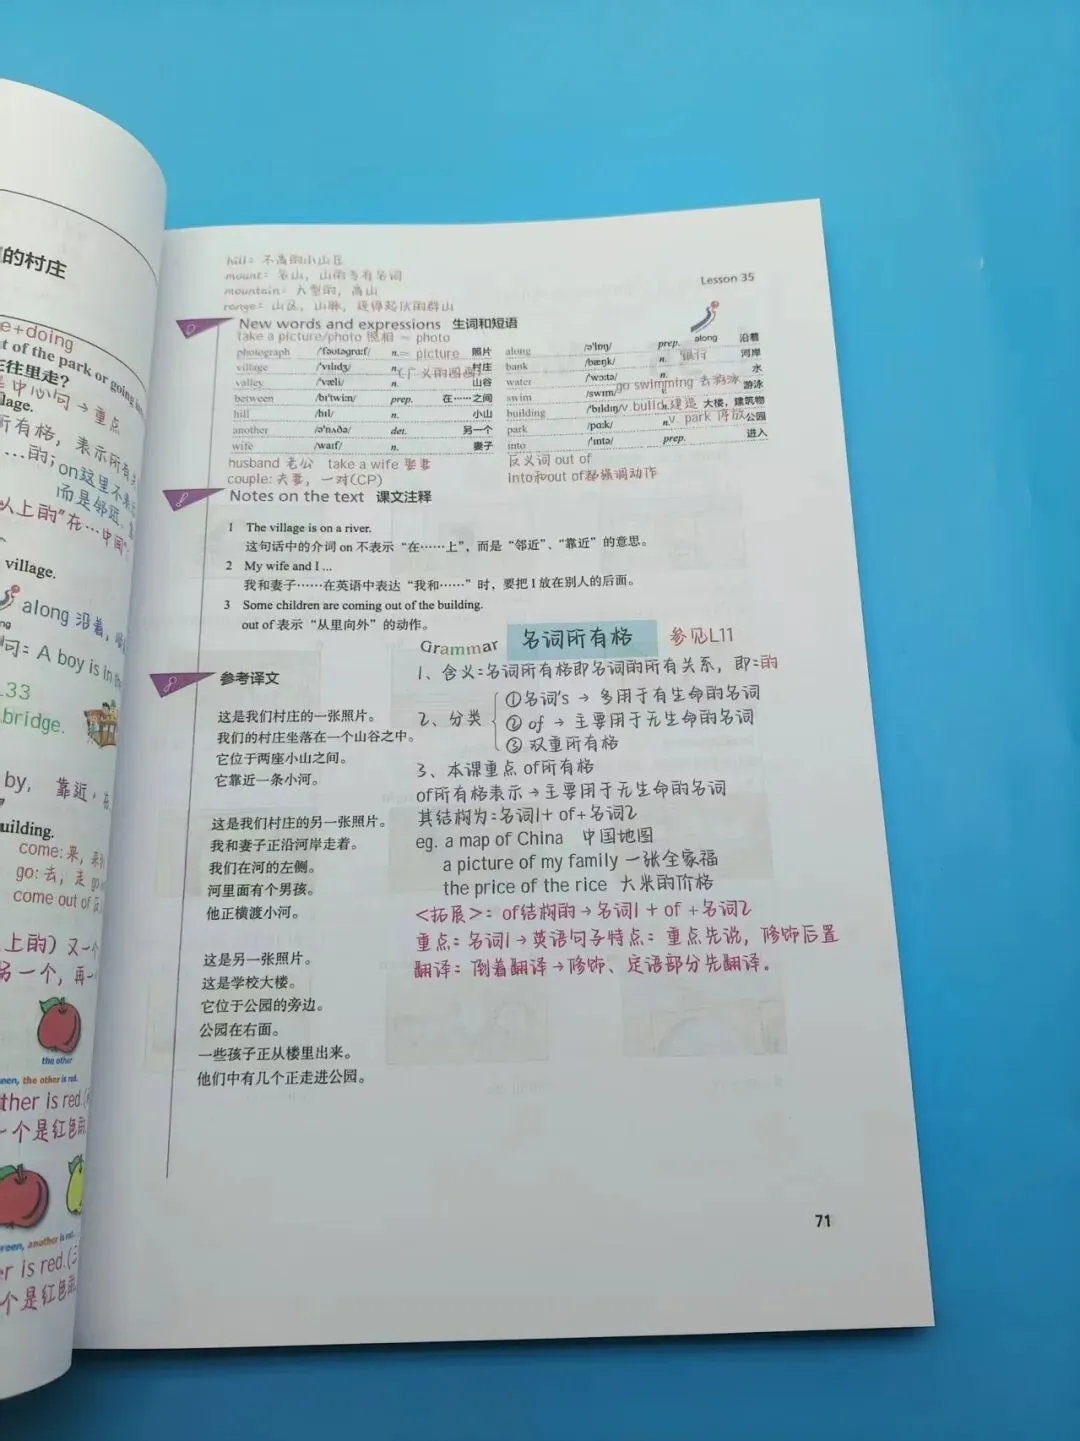 的村庄
e+doing
t of the park or going
往里走?
是中心句→重点
lage.
所有格，表示所有
…的;
on这里不表
而是邻近、
以上的"在…中间"
village.
along 沿着，
句= A boy is in
.33
bridge.
by, 靠近，
uilding.
come:来，
go:去，走 go
come out of
上的）又一个
另一个，再一
the other
een, the other is red.
ther is red.
一个是红色的
reen, another is red.
er is red.(三
个是红色的
hill= 不高的小山丘
mount= 名山，山的专有名词
mountain= 大型的，高山
range= 山区，山脉，连绵起伏的群山
Lesson 35
New words and expressions 生词和短语
take a picture/photo 照相 = photo
photograph /ˈfəʊtəgrɑːf/ n.= picture 照片
village /ˈvɪlɪdʒ/ n.(广义的图画) 村庄
valley /ˈvæli/ n. 山谷
between /bɪˈtwiːn/ prep. 在……之间
hill /hɪl/ n. 小山
another /əˈnʌðə/ det. 另一个
wife /waɪf/ n. 妻子
husband 老公 take a wife 娶妻
couple: 夫妻，一对(CP)
along
along /əˈlɒŋ/ prep. 沿着
bank /bæŋk/ n. 银行 河岸
water /ˈwɔːtə/ n. 水
swim /swɪm/ go swimming 去游泳 游泳
building /ˈbɪldɪŋ/ v.build 建造 大楼，建筑物
park /pɑːk/ n. v. park 停放 公园
into /ˈɪntə/ prep. 进入
反义词 out of
into和out of都强调动作
Notes on the text 课文注释
1 The village is on a river.
这句话中的介词 on 不表示“在……上”，而是“邻近”、“靠近”的意思。
2 My wife and I ...
我和妻子……在英语中表达“我和……”时，要把 I 放在别人的后面。
3 Some children are coming out of the building.
out of 表示“从里向外”的动作。
参考译文
这是我们村庄的一张照片。
我们的村庄坐落在一个山谷之中。
它位于两座小山之间。
它靠近一条小河。
这是我们村庄的另一张照片。
我和妻子正沿河岸走着。
我们在河的左侧。
河里面有个男孩。
他正横渡小河。
这是另一张照片。
这是学校大楼。
它位于公园的旁边。
公园在右面。
一些孩子正从楼里出来。
他们中有几个正走进公园。
Grammar 名词所有格 参见L11
1、含义:名词所有格即名词的所有关系，即:的
2、分类
①名词's → 多用于有生命的名词
② of → 主要用于无生命的名词
③ 双重所有格
3、本课重点 of所有格
of所有格表示→主要用于无生命的名词
其结构为:名词1+ of+名词2
eg. a map of China 中国地图
a picture of my family 一张全家福
the price of the rice 大米的价格
<拓展>: of结构的→名词1 + of +名词2
重点: 名词1→英语句子特点: 重点先说，修饰后置
翻译: 倒着翻译→修饰、定语部分先翻译。
71